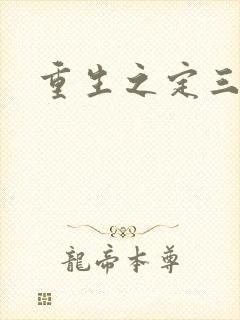 重生之定三
龍帝本尊